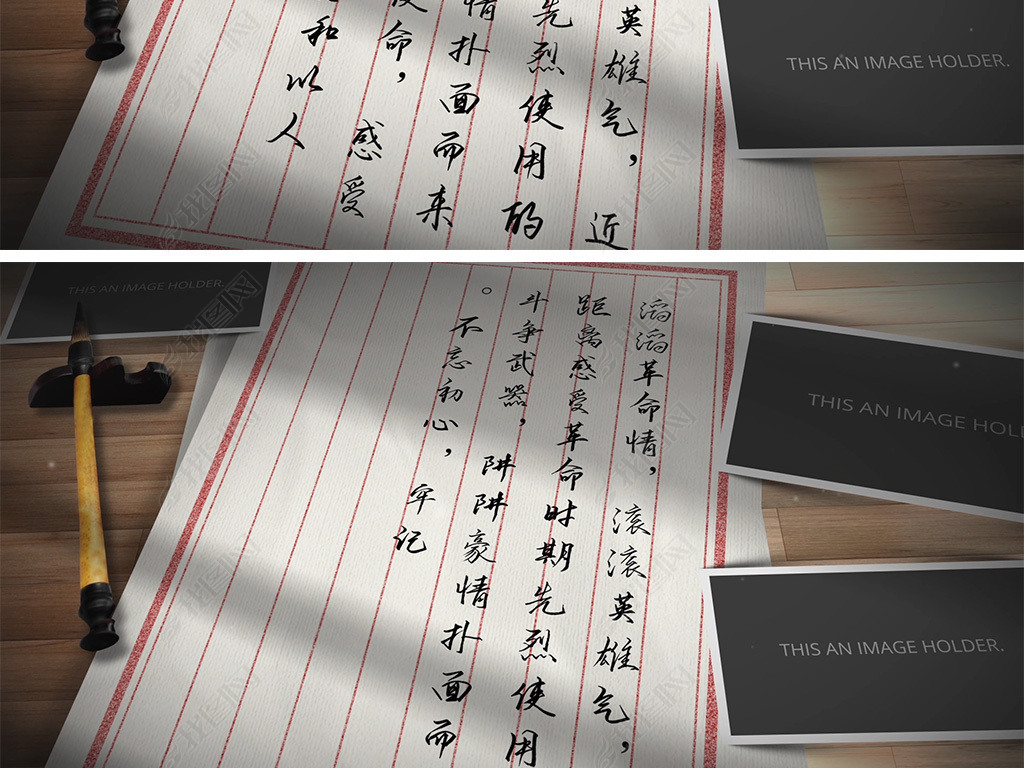 英雄气，近
先烈使用的
情扑面而来
命，感受
和以人
THIS AN IMAGE HOLDER.
THIS AN IMAGE HOLDER.
滔滔革命情，滚滚英雄气，
距离感受革命时期先烈使用
斗争武器，阱阱豪情扑面而
。不忘初心，牢记
THIS AN IMAGE HOL
THIS AN IMAGE HOLDER.
我图网